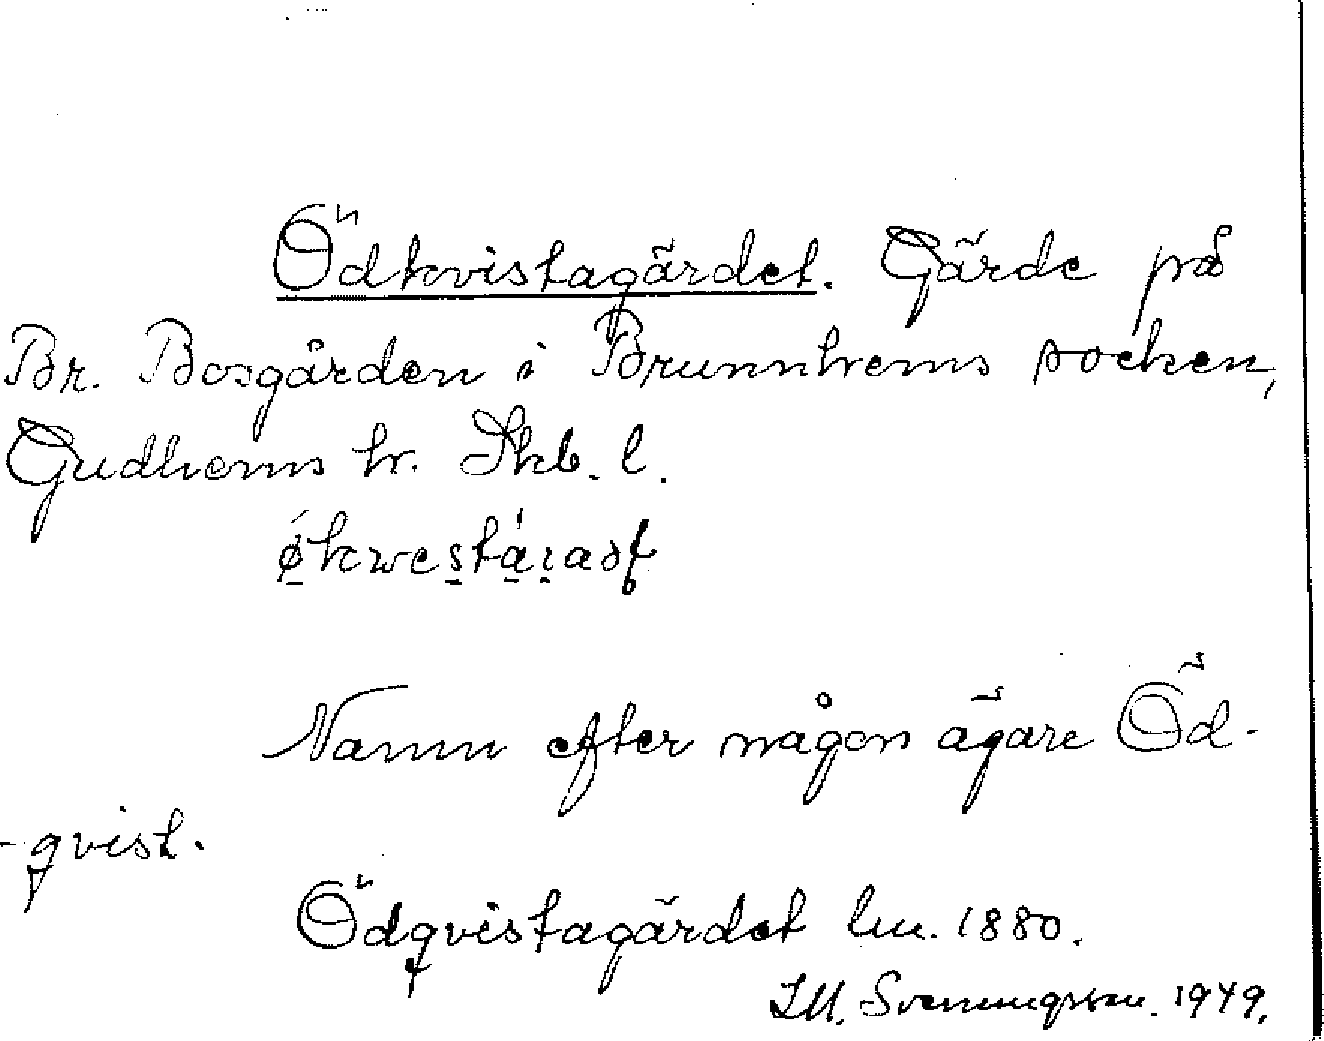 Ödkvistagärdet. Gärde på
Br. Bosgården i Brunnhems socken,
Gudhems hr. Skb. l.
Namn efter någon ägare Öd-
-qvist.
Ödqvistagärdet lm. 1880.
Svenungsson. 1949.